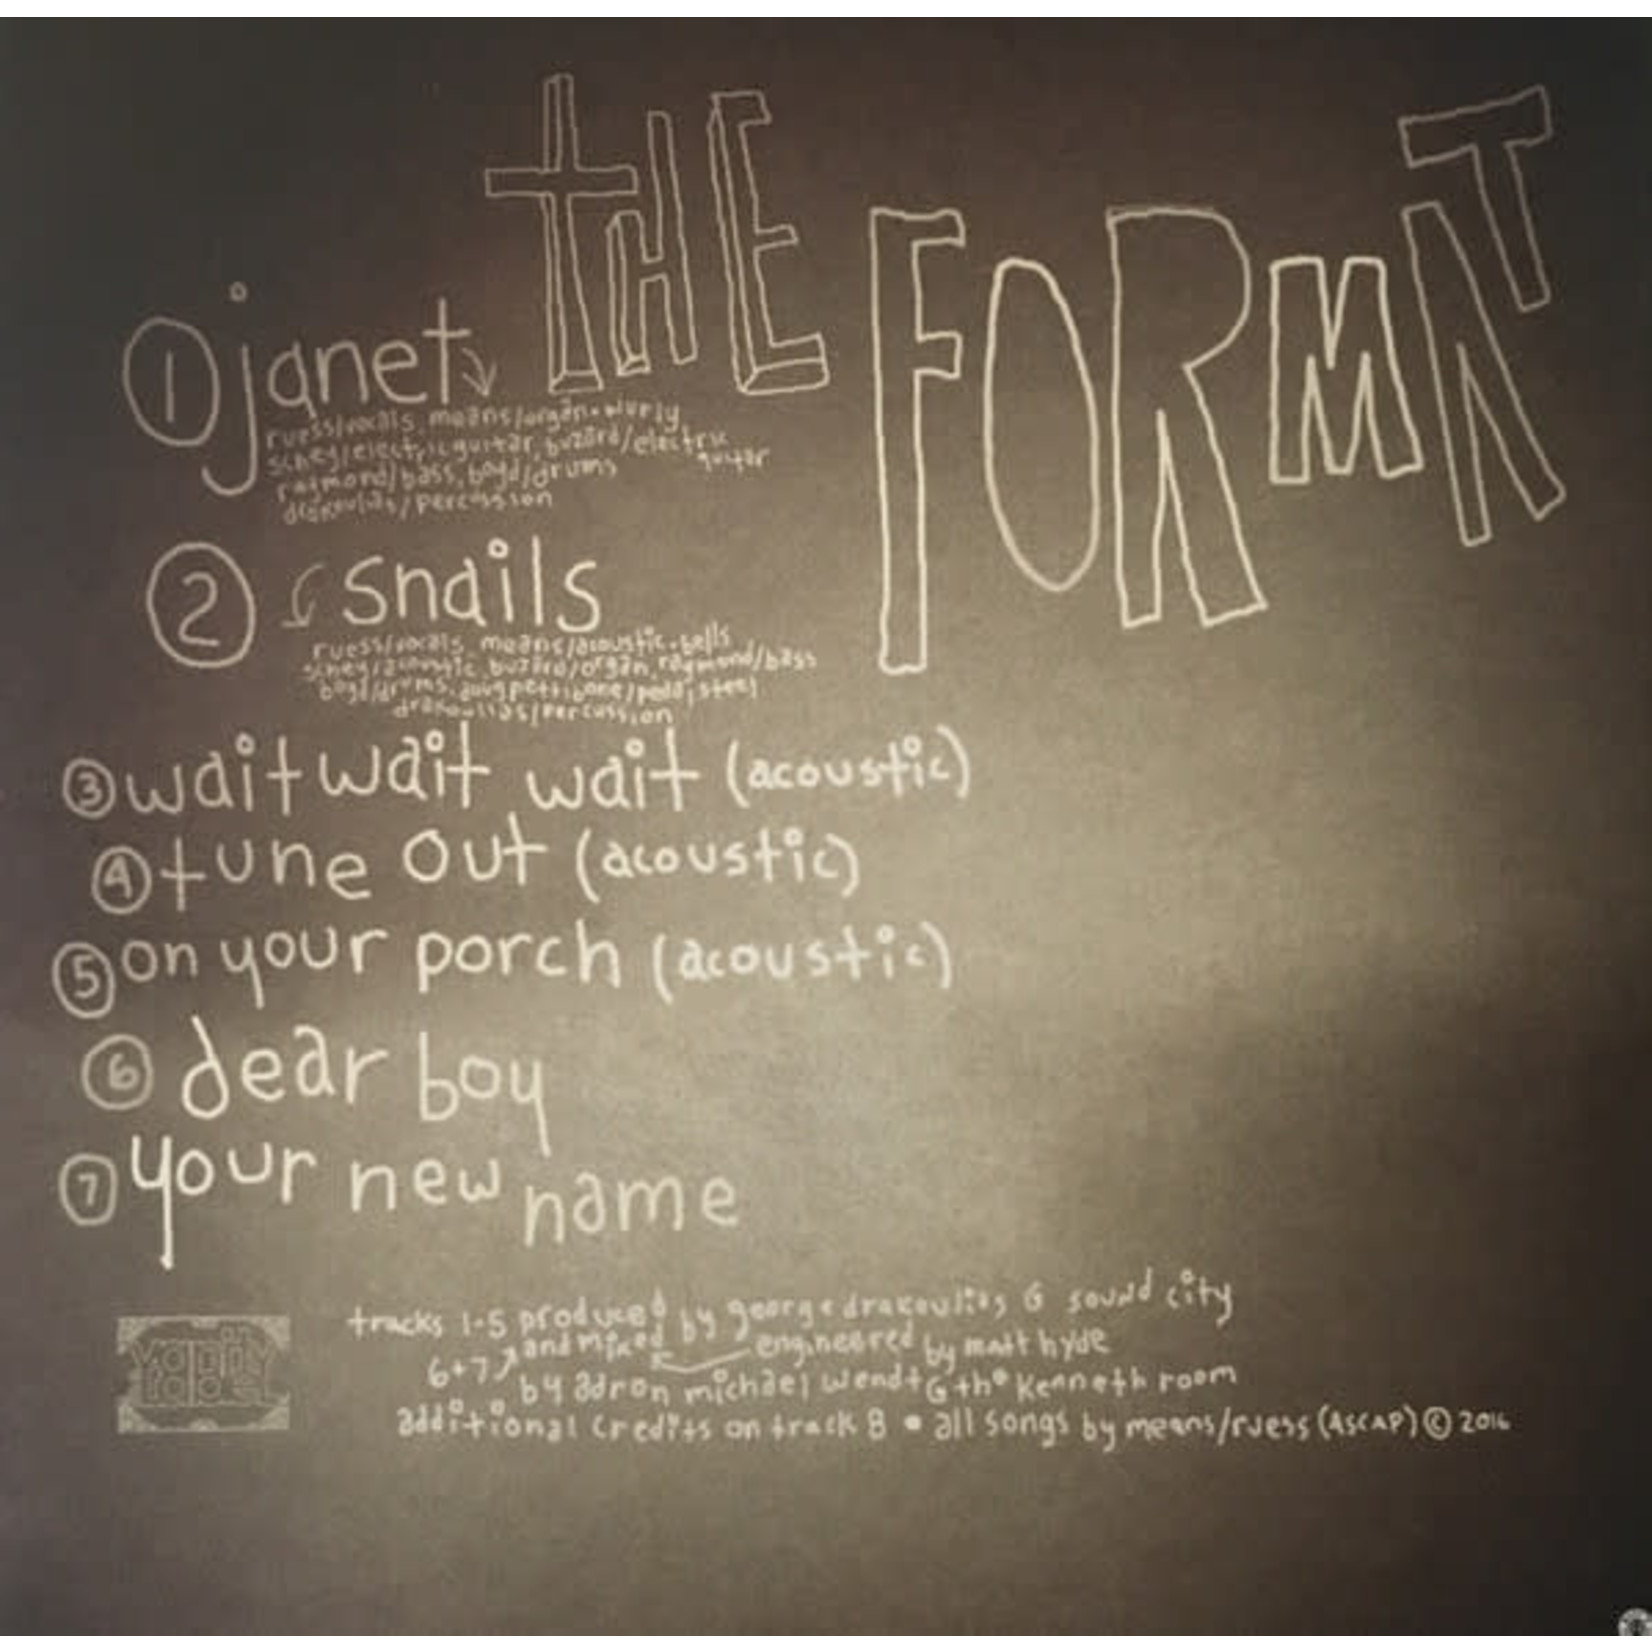 THE FORMAT
1 janet
ruess/vocals, means/organ+wurly
schey/electric guitar, buzard/electric guitar
raymond/bass, boyd/drums
drakoulias/percussion
2 snails
ruess/vocals, means/acoustic+bells
schey/acoustic, buzard/organ, raymond/bass
boyd/drums, doug pettibone/pedal steel
drakoulias/percussion
3 wait wait wait (acoustic)
4 tune out (acoustic)
5 on your porch (acoustic)
6 dear boy
7 your new name
tracks 1-5 produced by george drakoulias @ sound city
and mixed engineered by matt hyde
6+7 by adron michael wendt @ the kenneth room
additional credits on track 8 • all songs by means/ruess (ASCAP) © 2016
vanity label